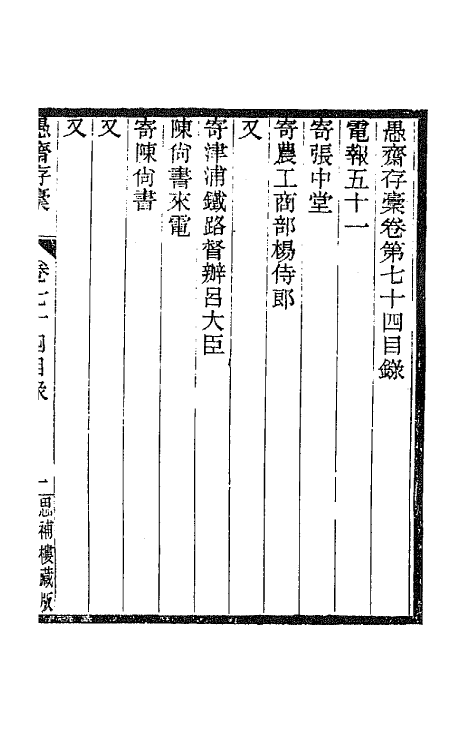 愚齋存稾卷第七十四目錄
電報五十一
寄張中堂
寄農工商部楊侍郎
又
寄津浦鐵路督辦呂大臣
陳尙書來電
寄陳尙書
又
又
愚齋存稾
卷七十四目錄
一
思補樓藏版